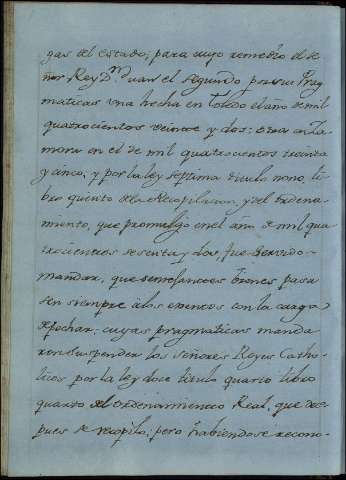 gas del estado; para cuyo remedio el se
ñor Rey D.n Juan el segundo por sus Prag
maticas una hecha en toledo el año de mil
quatrocientos veinte y dos: otra en Za
mora en el de mil quatrocientos treinta
y cinco, y por la ley septima titulo nono, li
bro quinto de la Recopilacion, y del ordena-
miento, que promulgó en el año de mil qua
trocientos sesenta y dos, fue servido
mandar, que semejantes bienes pasa
sen siempre à los exentos con la carga
de pechar; cuyas pragmaticas manda
ron suspender los señores Reyes Catho-
licos por la ley doce titulo quarto libro
quarto del ordenamiento Real, que des-
pues se recopiló; pero habiendose recono-